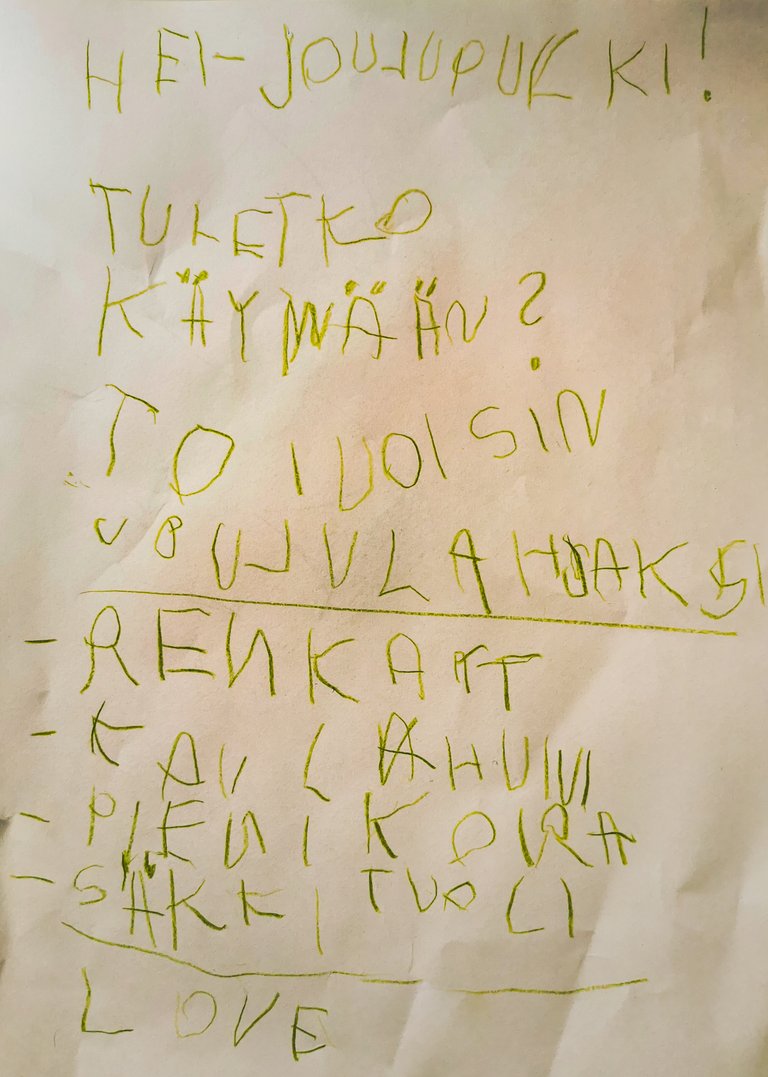 HEI-JOULUPUKKI!
TULETKO
KÄYMÄÄN?
TOIVOISIN
JOULULAHJAKSI
- RENKAAT
- KAULAHUIVI
- PIENI KOIRA
- SÄKKITUOLI
LOVE